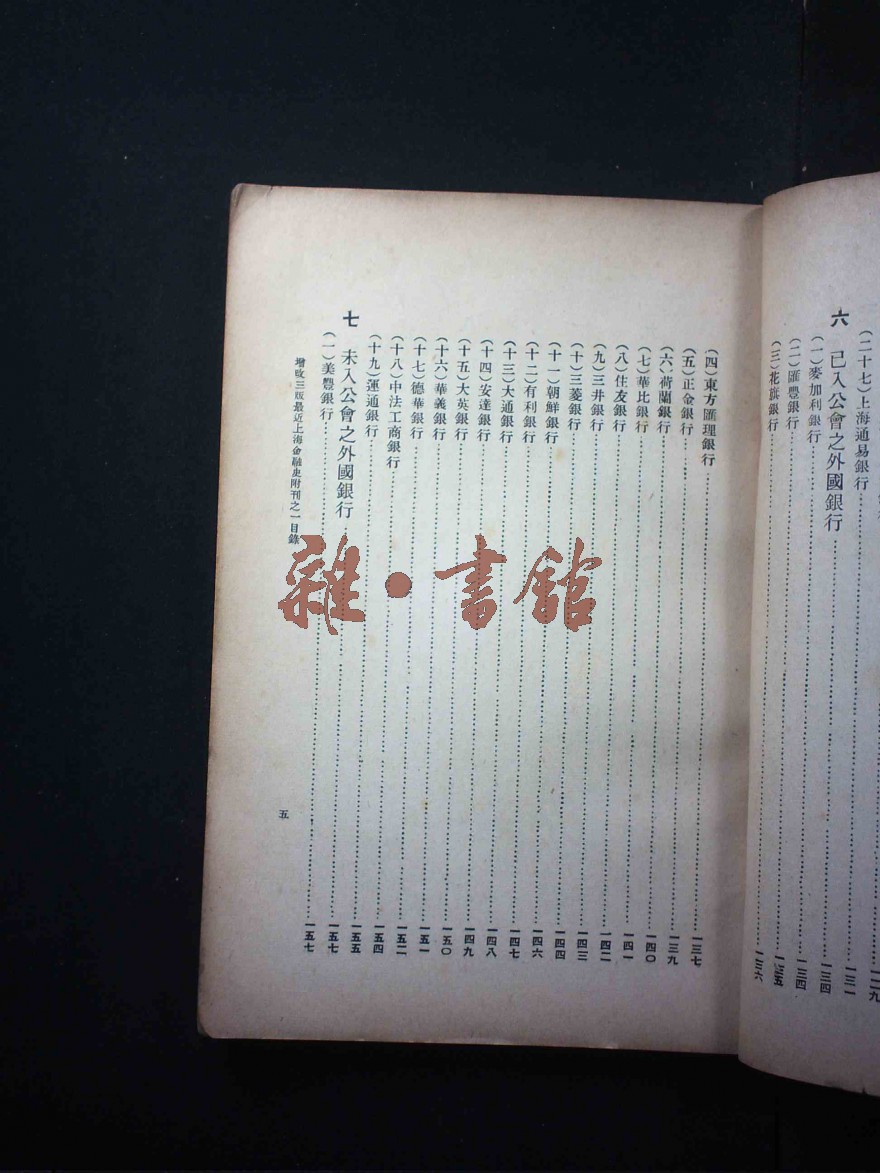 一二九
(二十七)上海通易銀行……一三一
六 已入公會之外國銀行……一三四
(一)麥加利銀行……一三四
(二)匯豐銀行……一三五
(三)花旗銀行……一三六
(四)東方匯理銀行……一三七
(五)正金銀行……一三九
(六)荷蘭銀行……一四〇
(七)華比銀行……一四一
(八)住友銀行……一四二
(九)三井銀行……一四三
(十)三菱銀行……一四四
(十一)朝鮮銀行……一四六
(十二)有利銀行……一四七
(十三)大通銀行……一四八
(十四)安達銀行……一四九
(十五)大英銀行……一五〇
(十六)華義銀行……一五一
(十七)德華銀行……一五二
(十八)中法工商銀行……一五四
(十九)運通銀行……一五五
七 未入公會之外國銀行……一五七
(一)美豐銀行……一五七
增改三版最近上海金融史附刊之一目錄
五
雜·書館